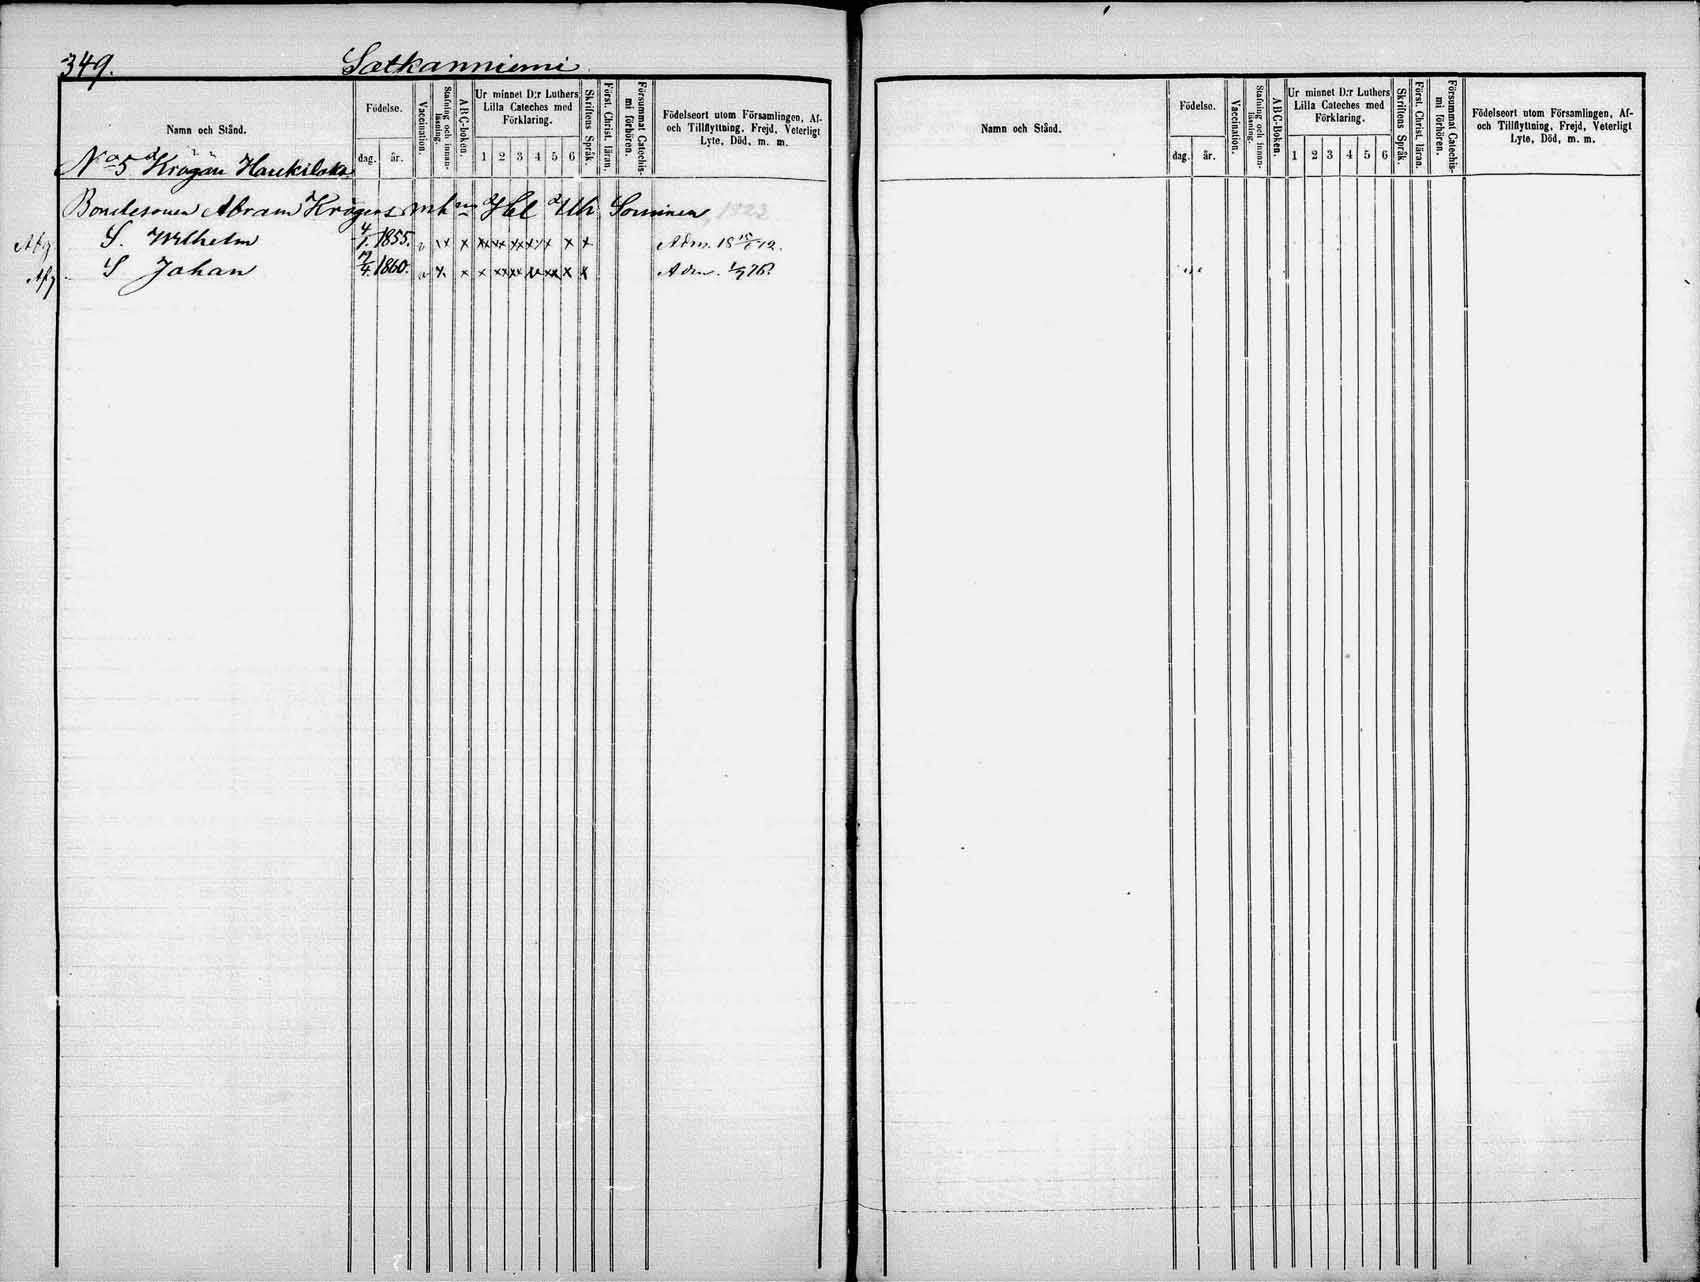 349. Satkanniemi
Namn och Stånd.
Födelse.
dag. år.
Vaccination.
Stafning och innanläsning.
ABC-boken.
Ur minnet D:r Luthers Lilla Cateches med Förklaring.
1 2 3 4 5 6
Skriftens Språk.
Först. Christ. läran.
Försummat Catechismi förhören.
Födelseort utom Församlingen, Af- och Tillflyttning, Frejd, Veterligt Lyte, Död, m. m.
No 5
Bondesonen Abram Krögers
S. Wilhelm 4/1. 1855. Adm.
S Johan 1860. Adm.
Namn och Stånd.
Födelse.
dag. år.
Vaccination.
Stafning och innanläsning.
ABC-Boken.
Ur minnet D:r Luthers Lilla Cateches med Förklaring.
1 2 3 4 5 6
Skriftens Språk.
Först. Christ. läran.
Försummat Catechismi förhören.
Födelseort utom Församlingen, Af- och Tillflyttning, Frejd, Veterligt Lyte, Död, m. m.